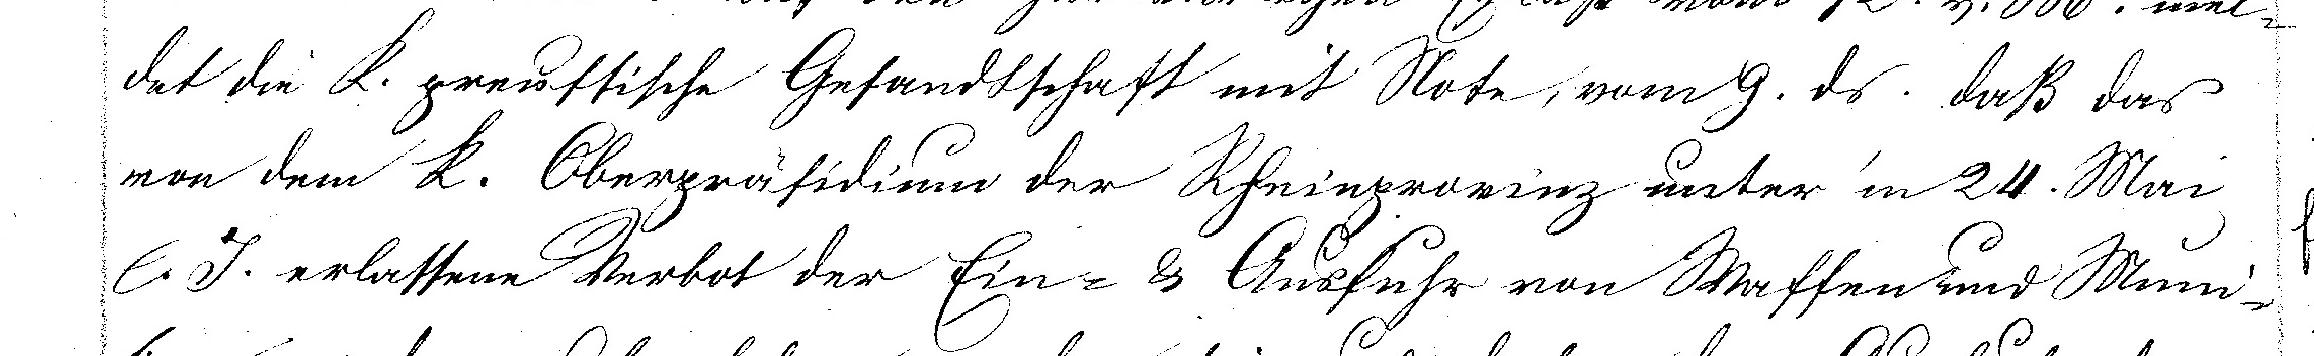 vom 12. v. Mts. mel-
det die K. preußische Gesandtschaft mit Note, vom 9. ds. daß das
von dem K. Oberpräsidium der Rheinprovinz unter'm 24. Mai
l. J. erlassene Verbot der Ein- & Ausfuhr von Waffen und Muni-